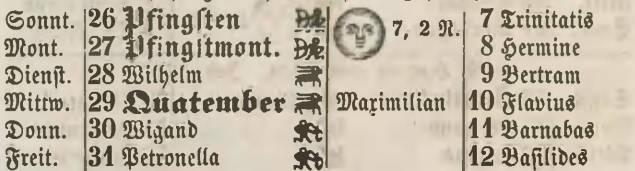 Sonnt. 26 Pfingſten 7, 2 N. 7 Trinitatis
Mont. 27 Pfingſtmont. 8 Hermine
Dienſt. 28 Wilhelm 9 Bertram
Mittw. 29 Quatember Maximilian 10 Flavius
Donn. 30 Wigand 11 Barnabas
Freit. 31 Petronella 12 Baſilides